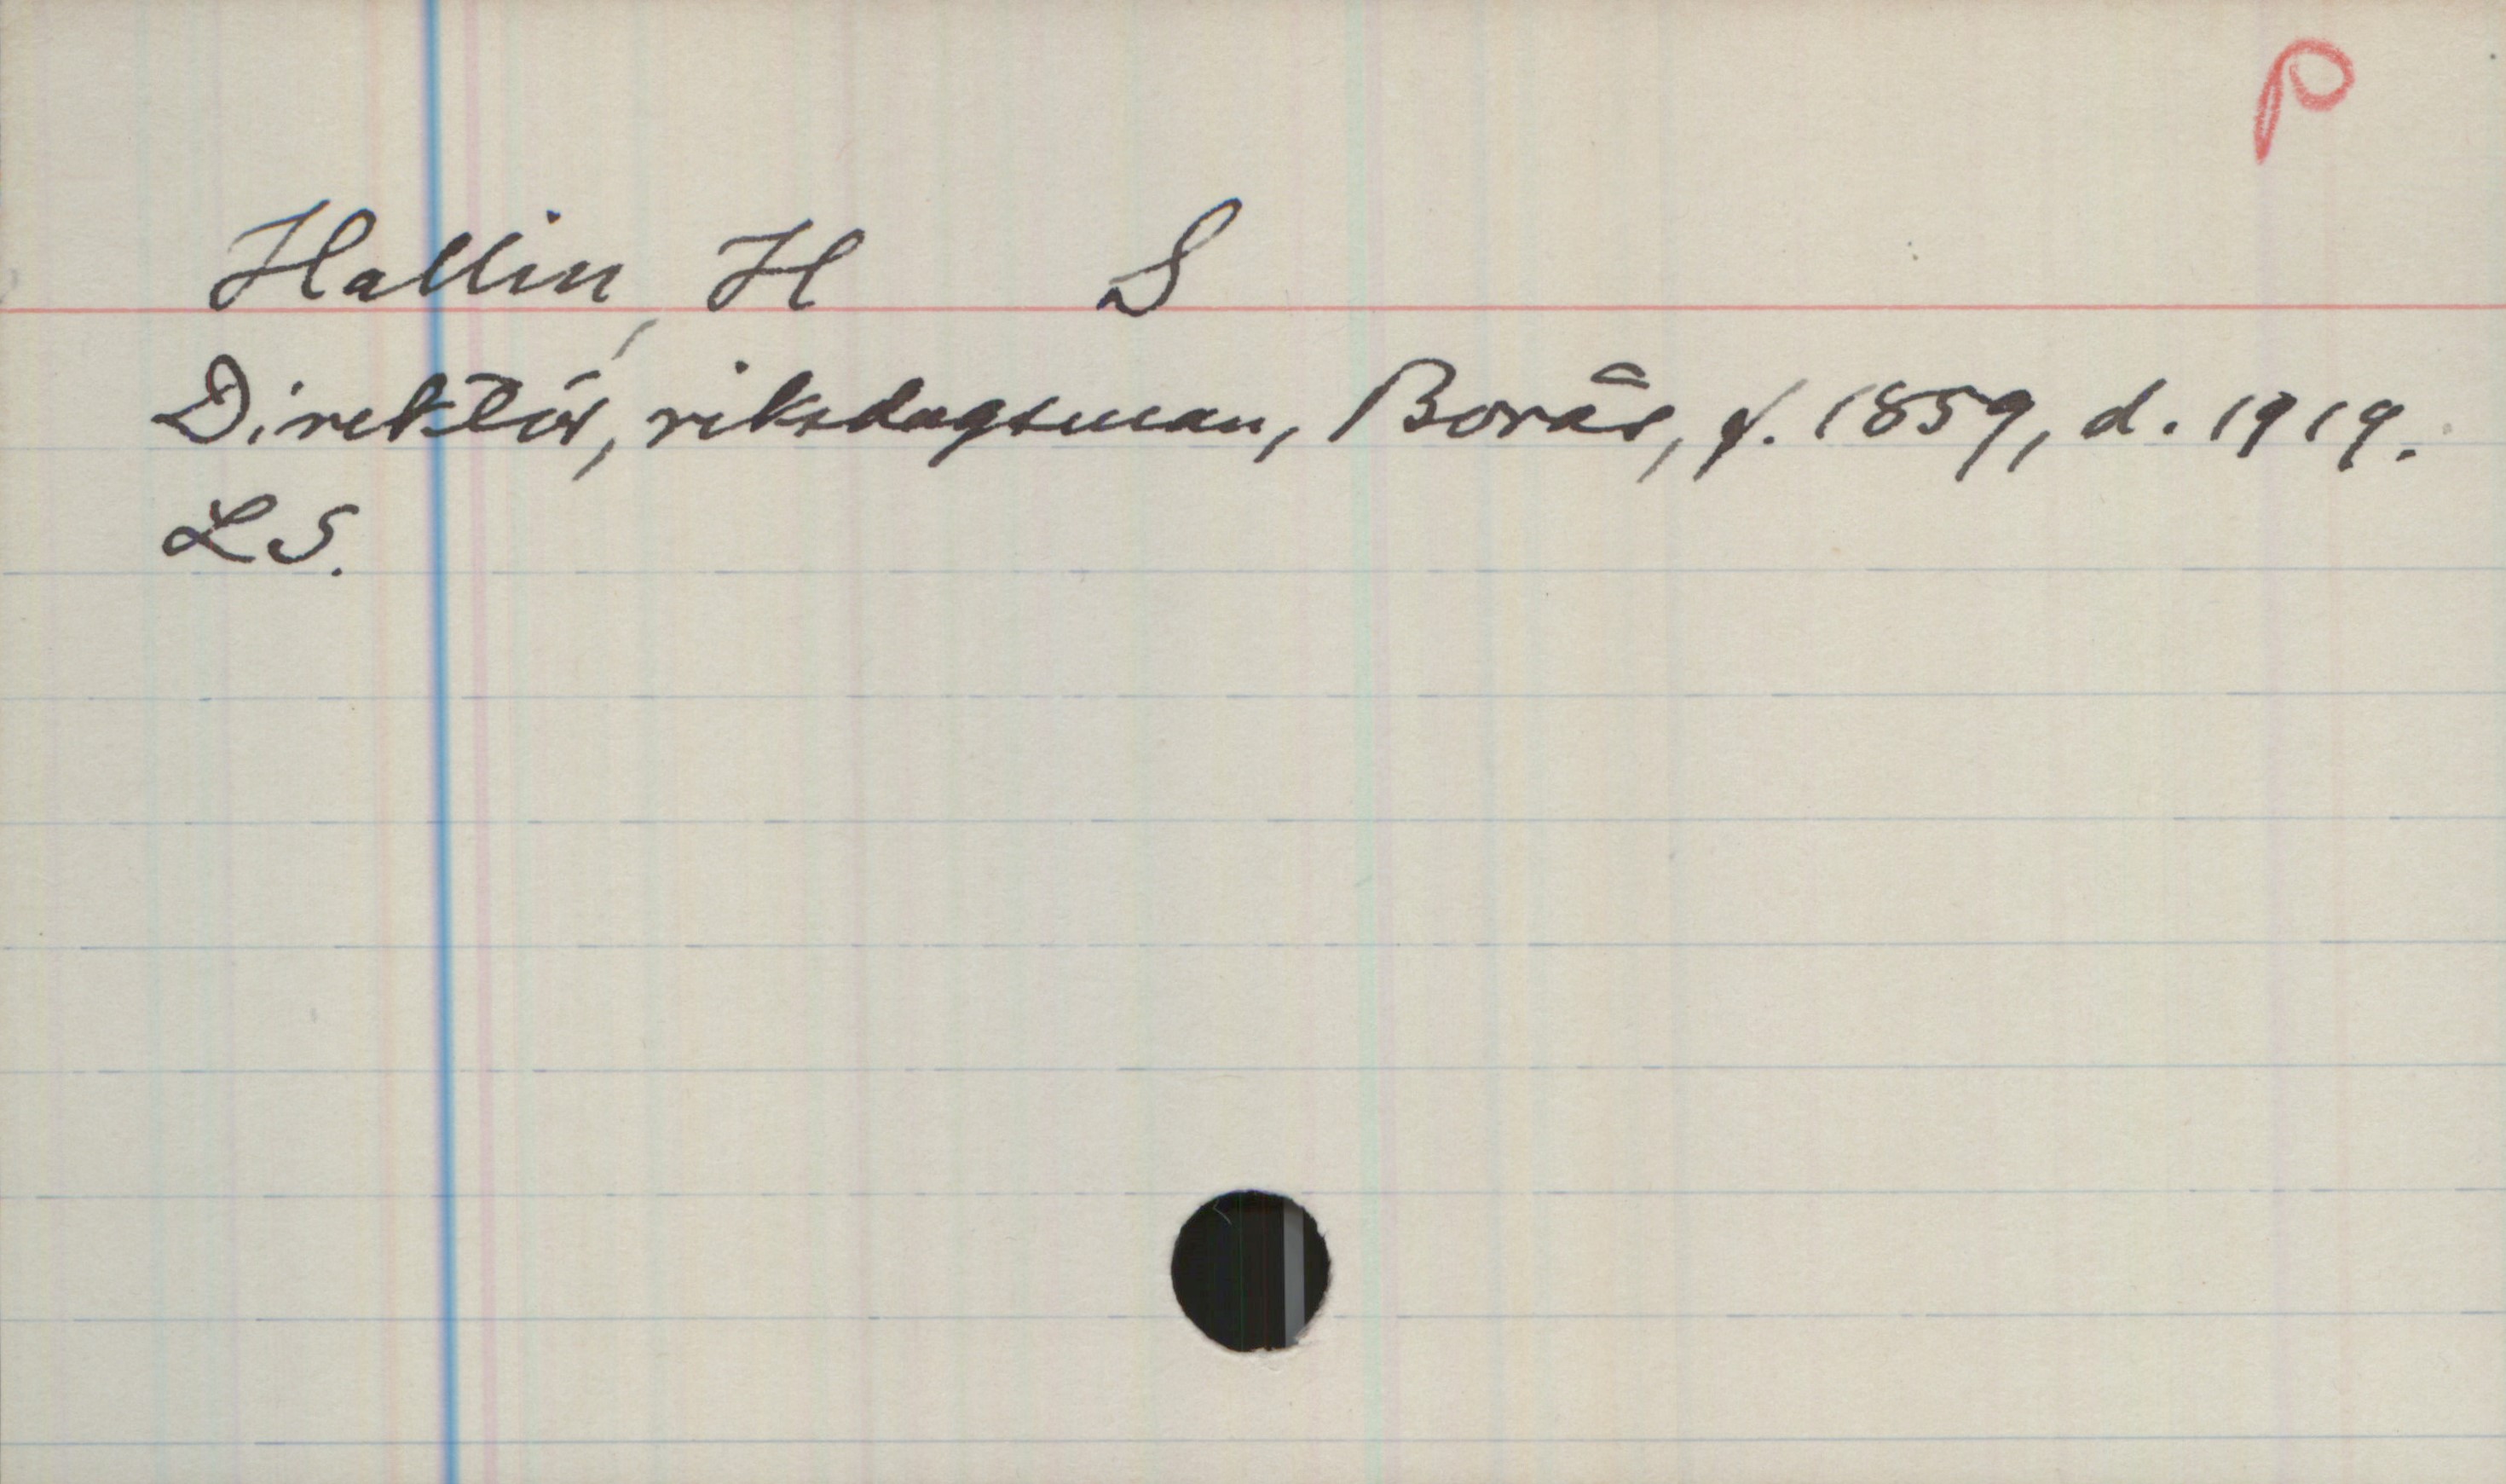 P
Hallin, H S
Direktör, riksdagsman, Borås, f. 1859, d. 1919.
LS.